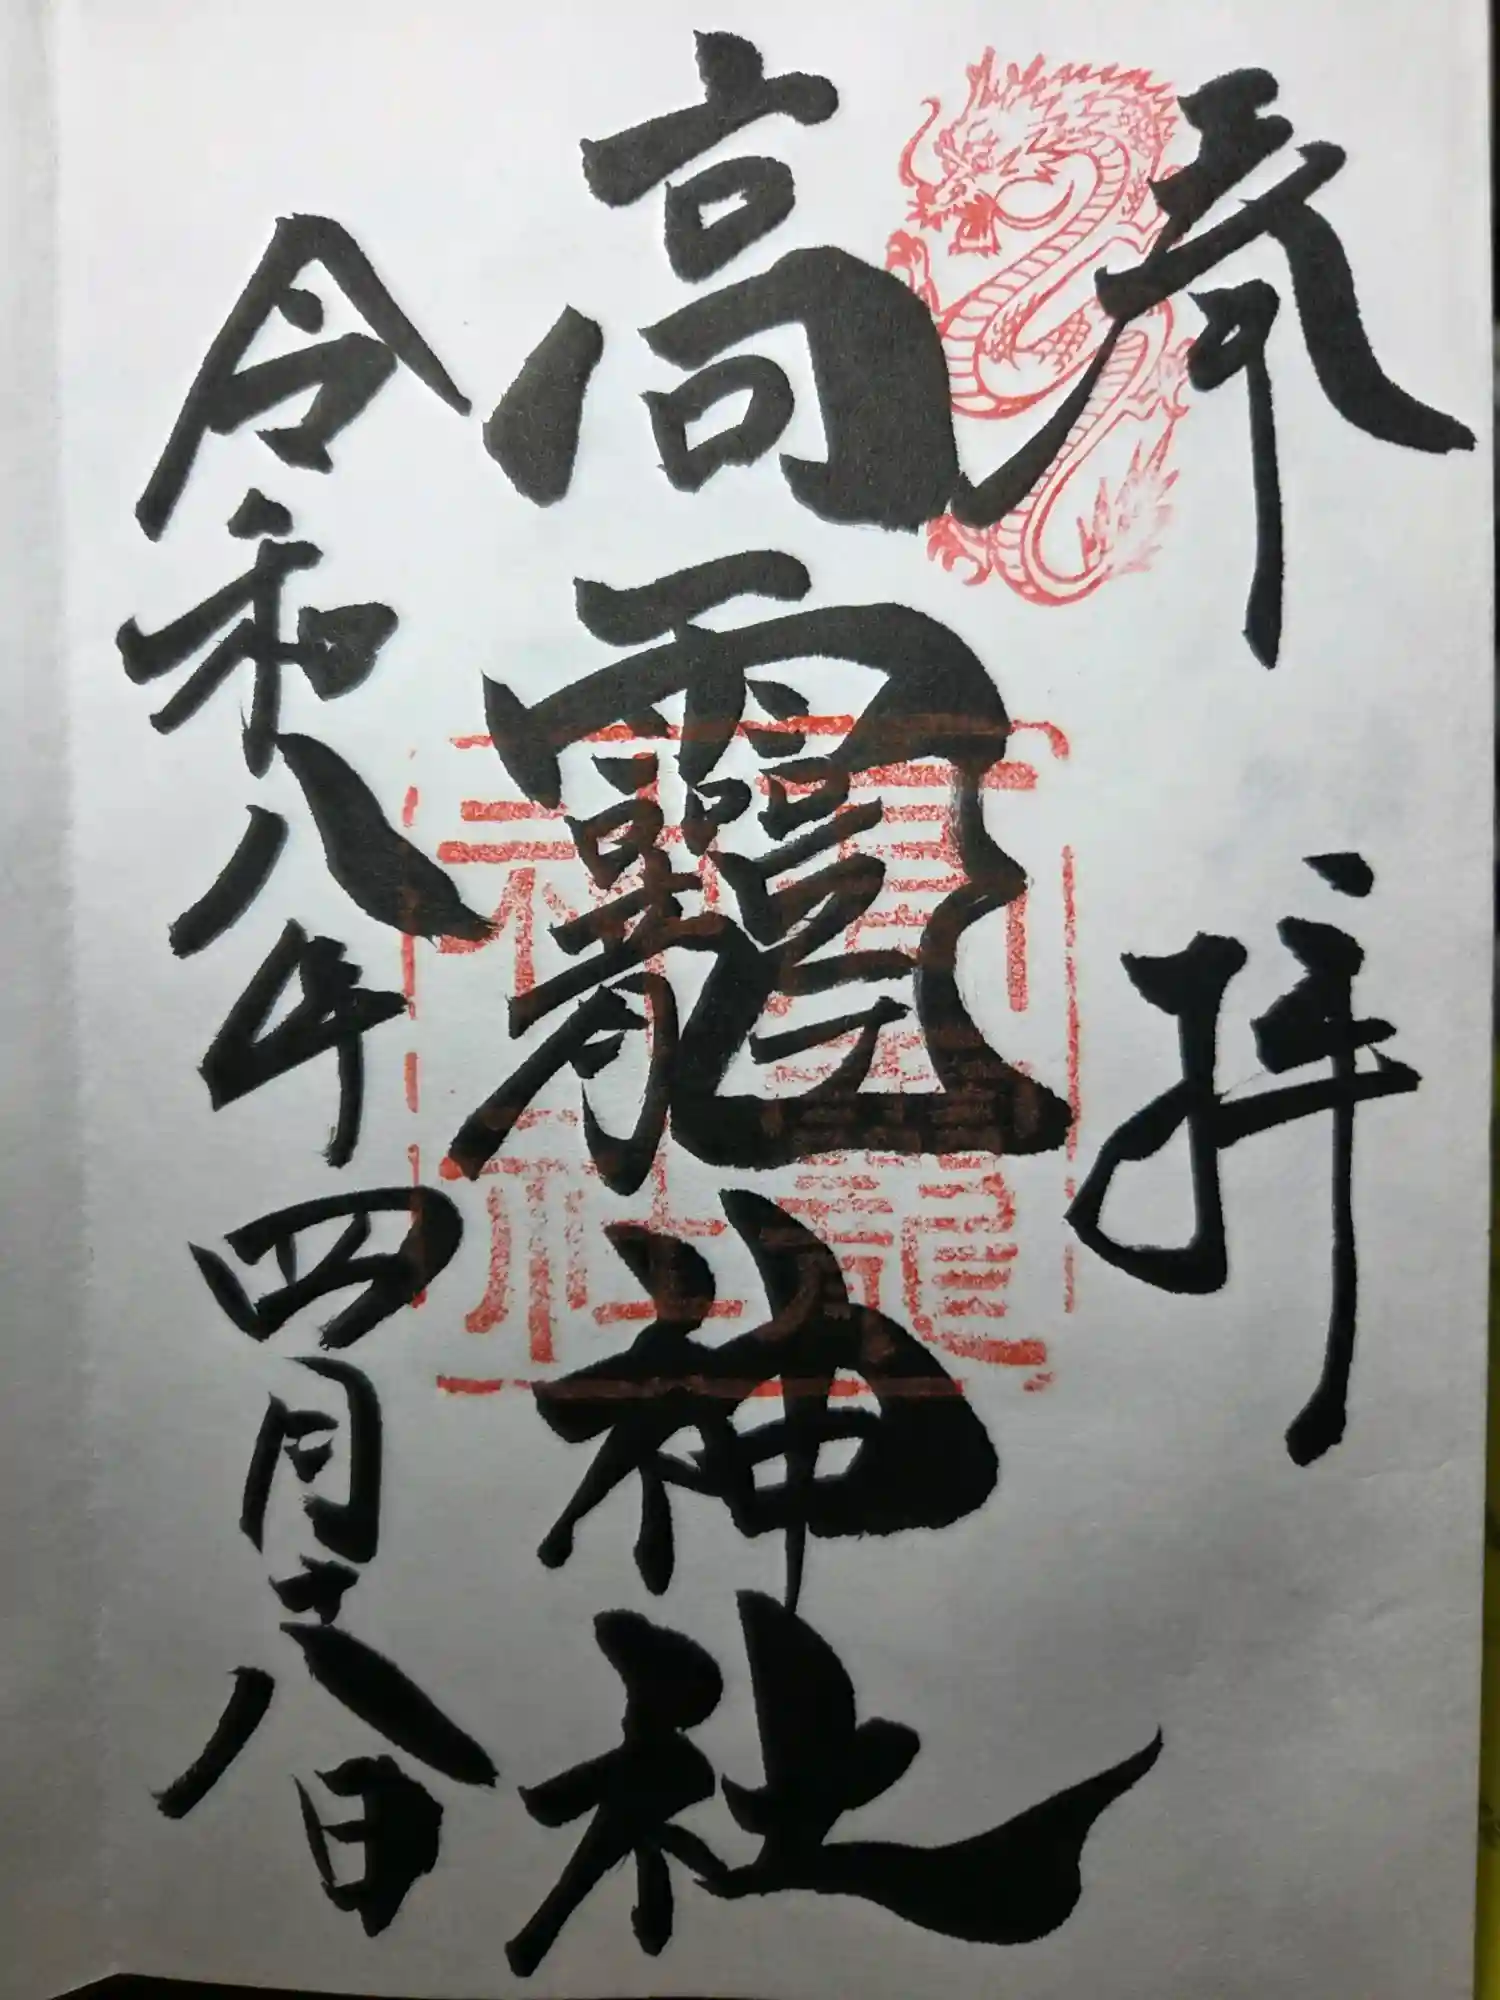 奉拝
高龗神社
令和八年四月十八日
高龗
神社